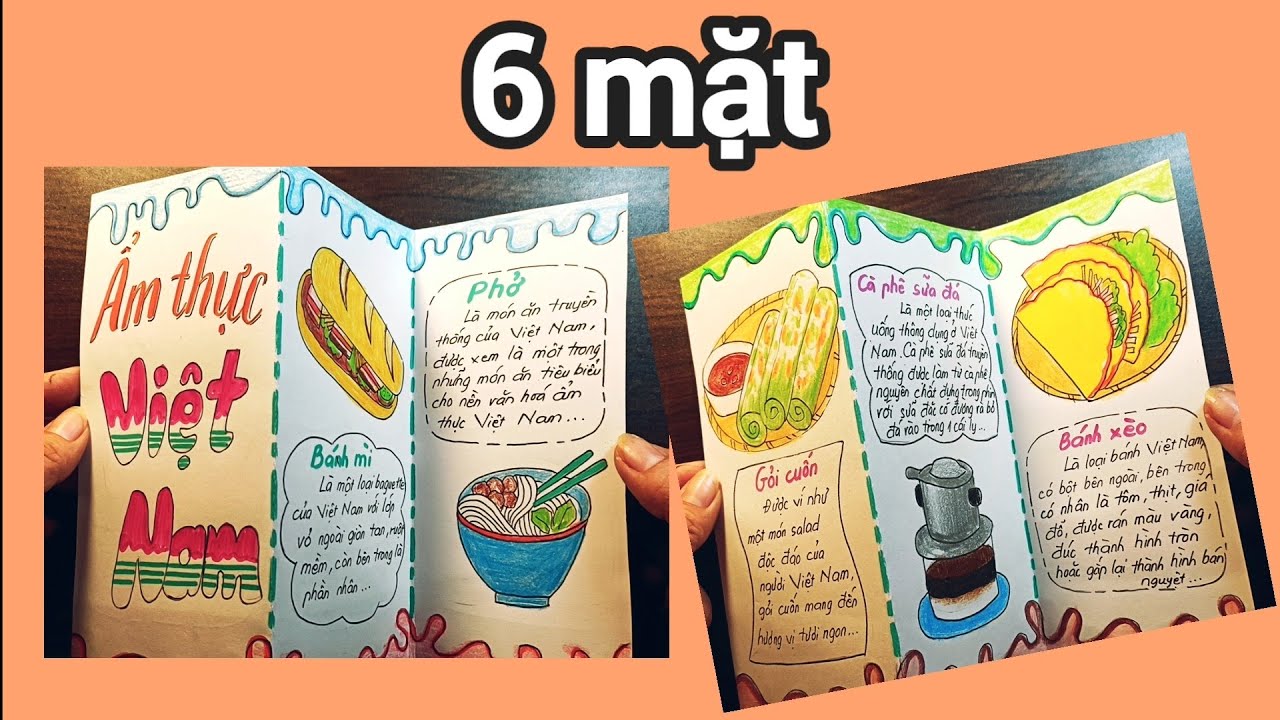 6 mặt
Ẩm thực
Việt
Nam
Bánh mì
Là một loại baguette
của Việt Nam với lớp
vỏ ngoài giòn tan, ruột
mềm, còn bên trong là
phần nhân...
Phở
Là món ăn truyền
thống của Việt Nam,
được xem là một trong
những món ăn tiêu biểu
cho nền văn hoá ẩm
thực Việt Nam...
Gỏi cuốn
Được ví như
một món salad
độc đáo của
người Việt Nam,
gỏi cuốn mang đến
hương vị tươi ngon...
Cà phê sữa đá
Là một loại thức
uống thông dụng ở Việt
Nam. Cà phê sữa đá truyền
thống được làm từ cà phê
nguyên chất đựng trong phin
với sữa đặc có đường rà bỏ
đá vào trong 1 cái ly...
Bánh xèo
Là loại bánh Việt Nam,
có bột bên ngoài, bên trong
có nhân là tôm, thịt, giá
đỗ, được rán màu vàng,
đúc thành hình tròn
hoặc gấp lại thành hình bán
nguyệt...